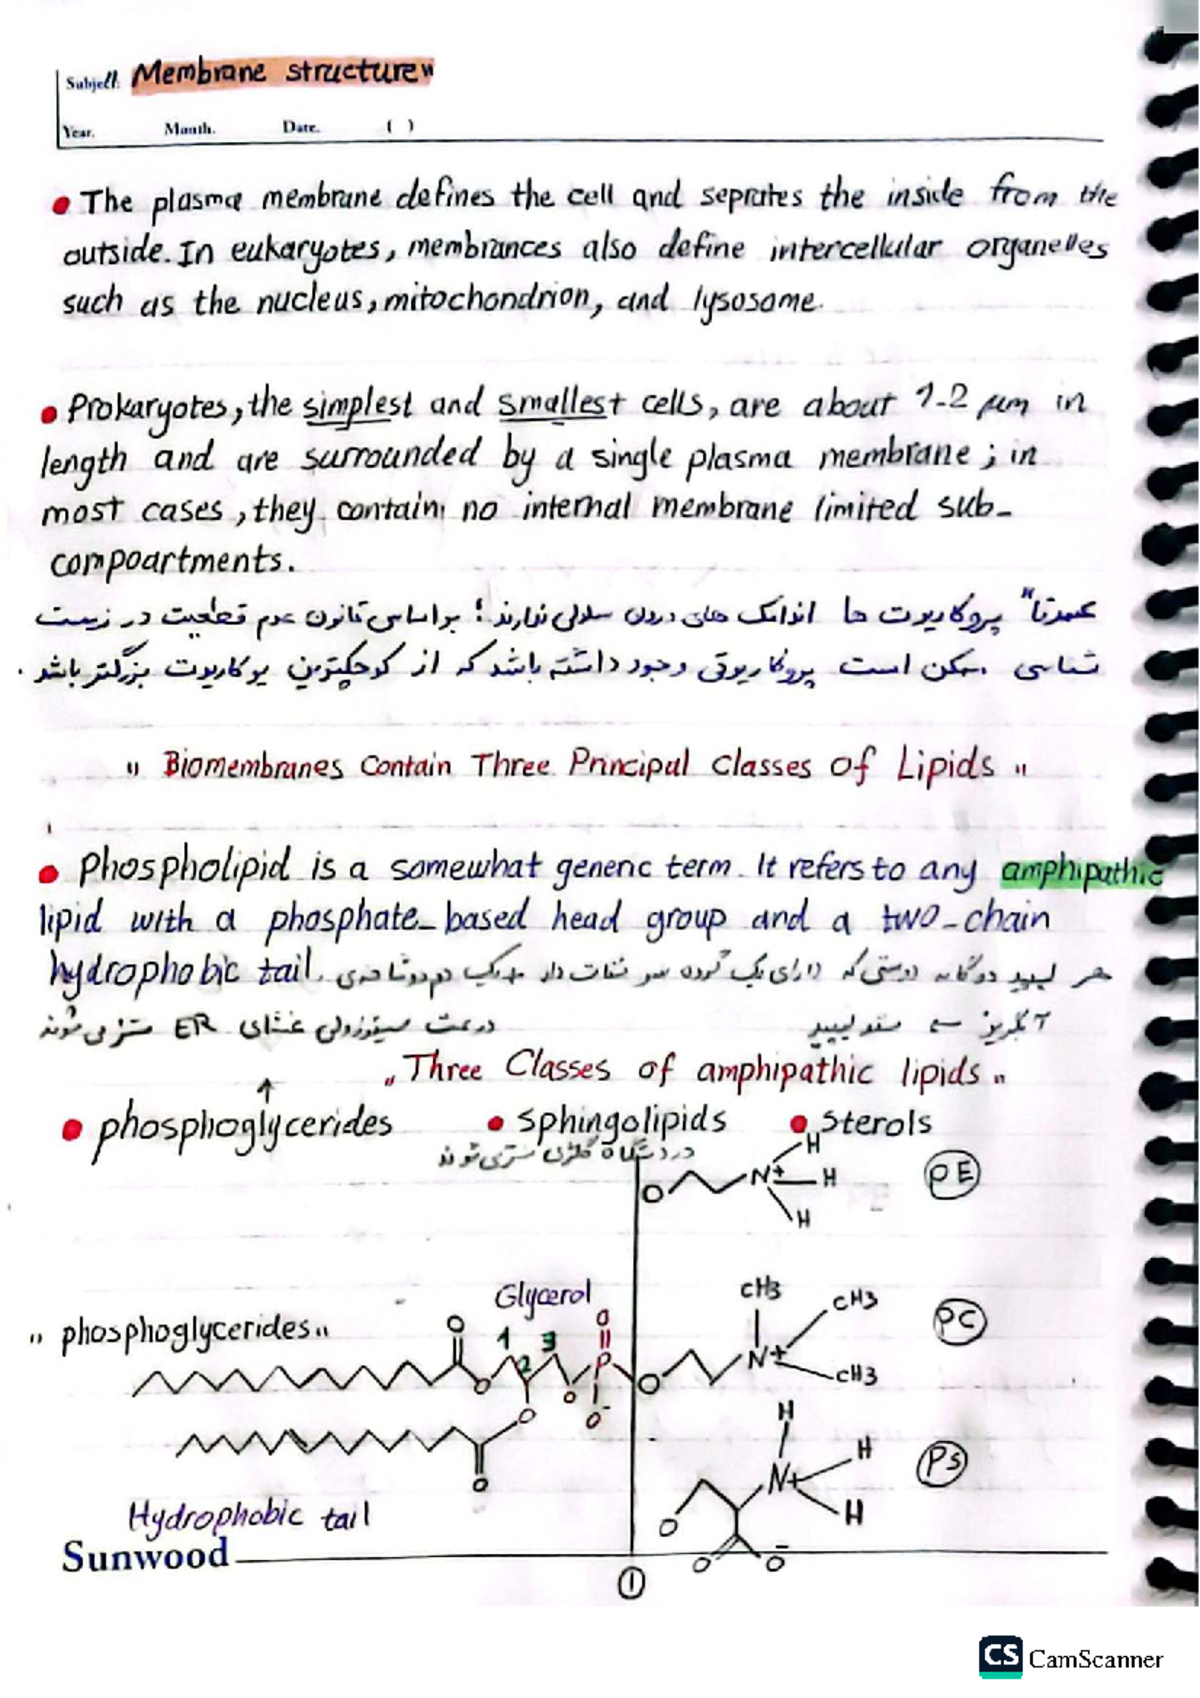 Subject: Membrane structure"
Year. Month. Date. ( )
• The plasma membrane defines the cell and seprates the inside from the
outside. In eukaryotes, membrances also define intercellular organelles
such as the nucleus, mitochondrion, and lysosome.
• Prokaryotes, the simplest and smallest cells, are about 1-2 μm in
length and are surrounded by a single plasma membrane; in
most cases, they contain no internal membrane limited sub-
compoartments.
عمدتا" پروکاریوت ها اندامک های درون سلولی ندارند؛ براساس قانون عدم قطعیت در زیست
شناسی ممکن است پروکاریوتی وجود داشته باشد که از کوچکترین یوکاریوت بزرگتر باشد.
" Biomembranes Contain Three Principal Classes of Lipids "
• Phospholipid is a somewhat generic term. It refers to any amphipathic
lipid with a phosphate-based head group and a two-chain
hydrophobic tail. هر لیپید دوگانه دوستی که دارای یک گروه سر فسفات دار
در سمت سیتوزولی غشای ER سنتز می شوند
"Three Classes of amphipathic lipids"
• phosphoglycerides • Sphingolipids • Sterols
در دستگاه گلژی سنتز می شوند
O N+ H H H PE
Glycerol
" phosphoglycerides"
O 1 2 3 O P O O O- O O
O N+ CH3 CH3 CH3 PC
O N+ H H H O O- PS
Hydrophobic tail
Sunwood
1
CS CamScanner